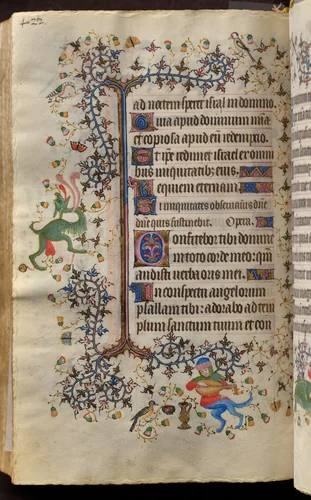 ad noctem speret israel in domino.
Quia apud dominum mia
et copiosa apud eū redempcio.
Et ipse redimet israel ex omni
bus iniquitatibus eius.
Requiem eternam
Si iniquitates obseruaueris dñe
dñe quis sustinebit. Opera.
Confitebor tibi domine
in toto corde meo: qm̄
audisti verba oris mei.
In conspectu angelorum
psallam tibi: adorabo ad tem
plum sanctum tuum et con